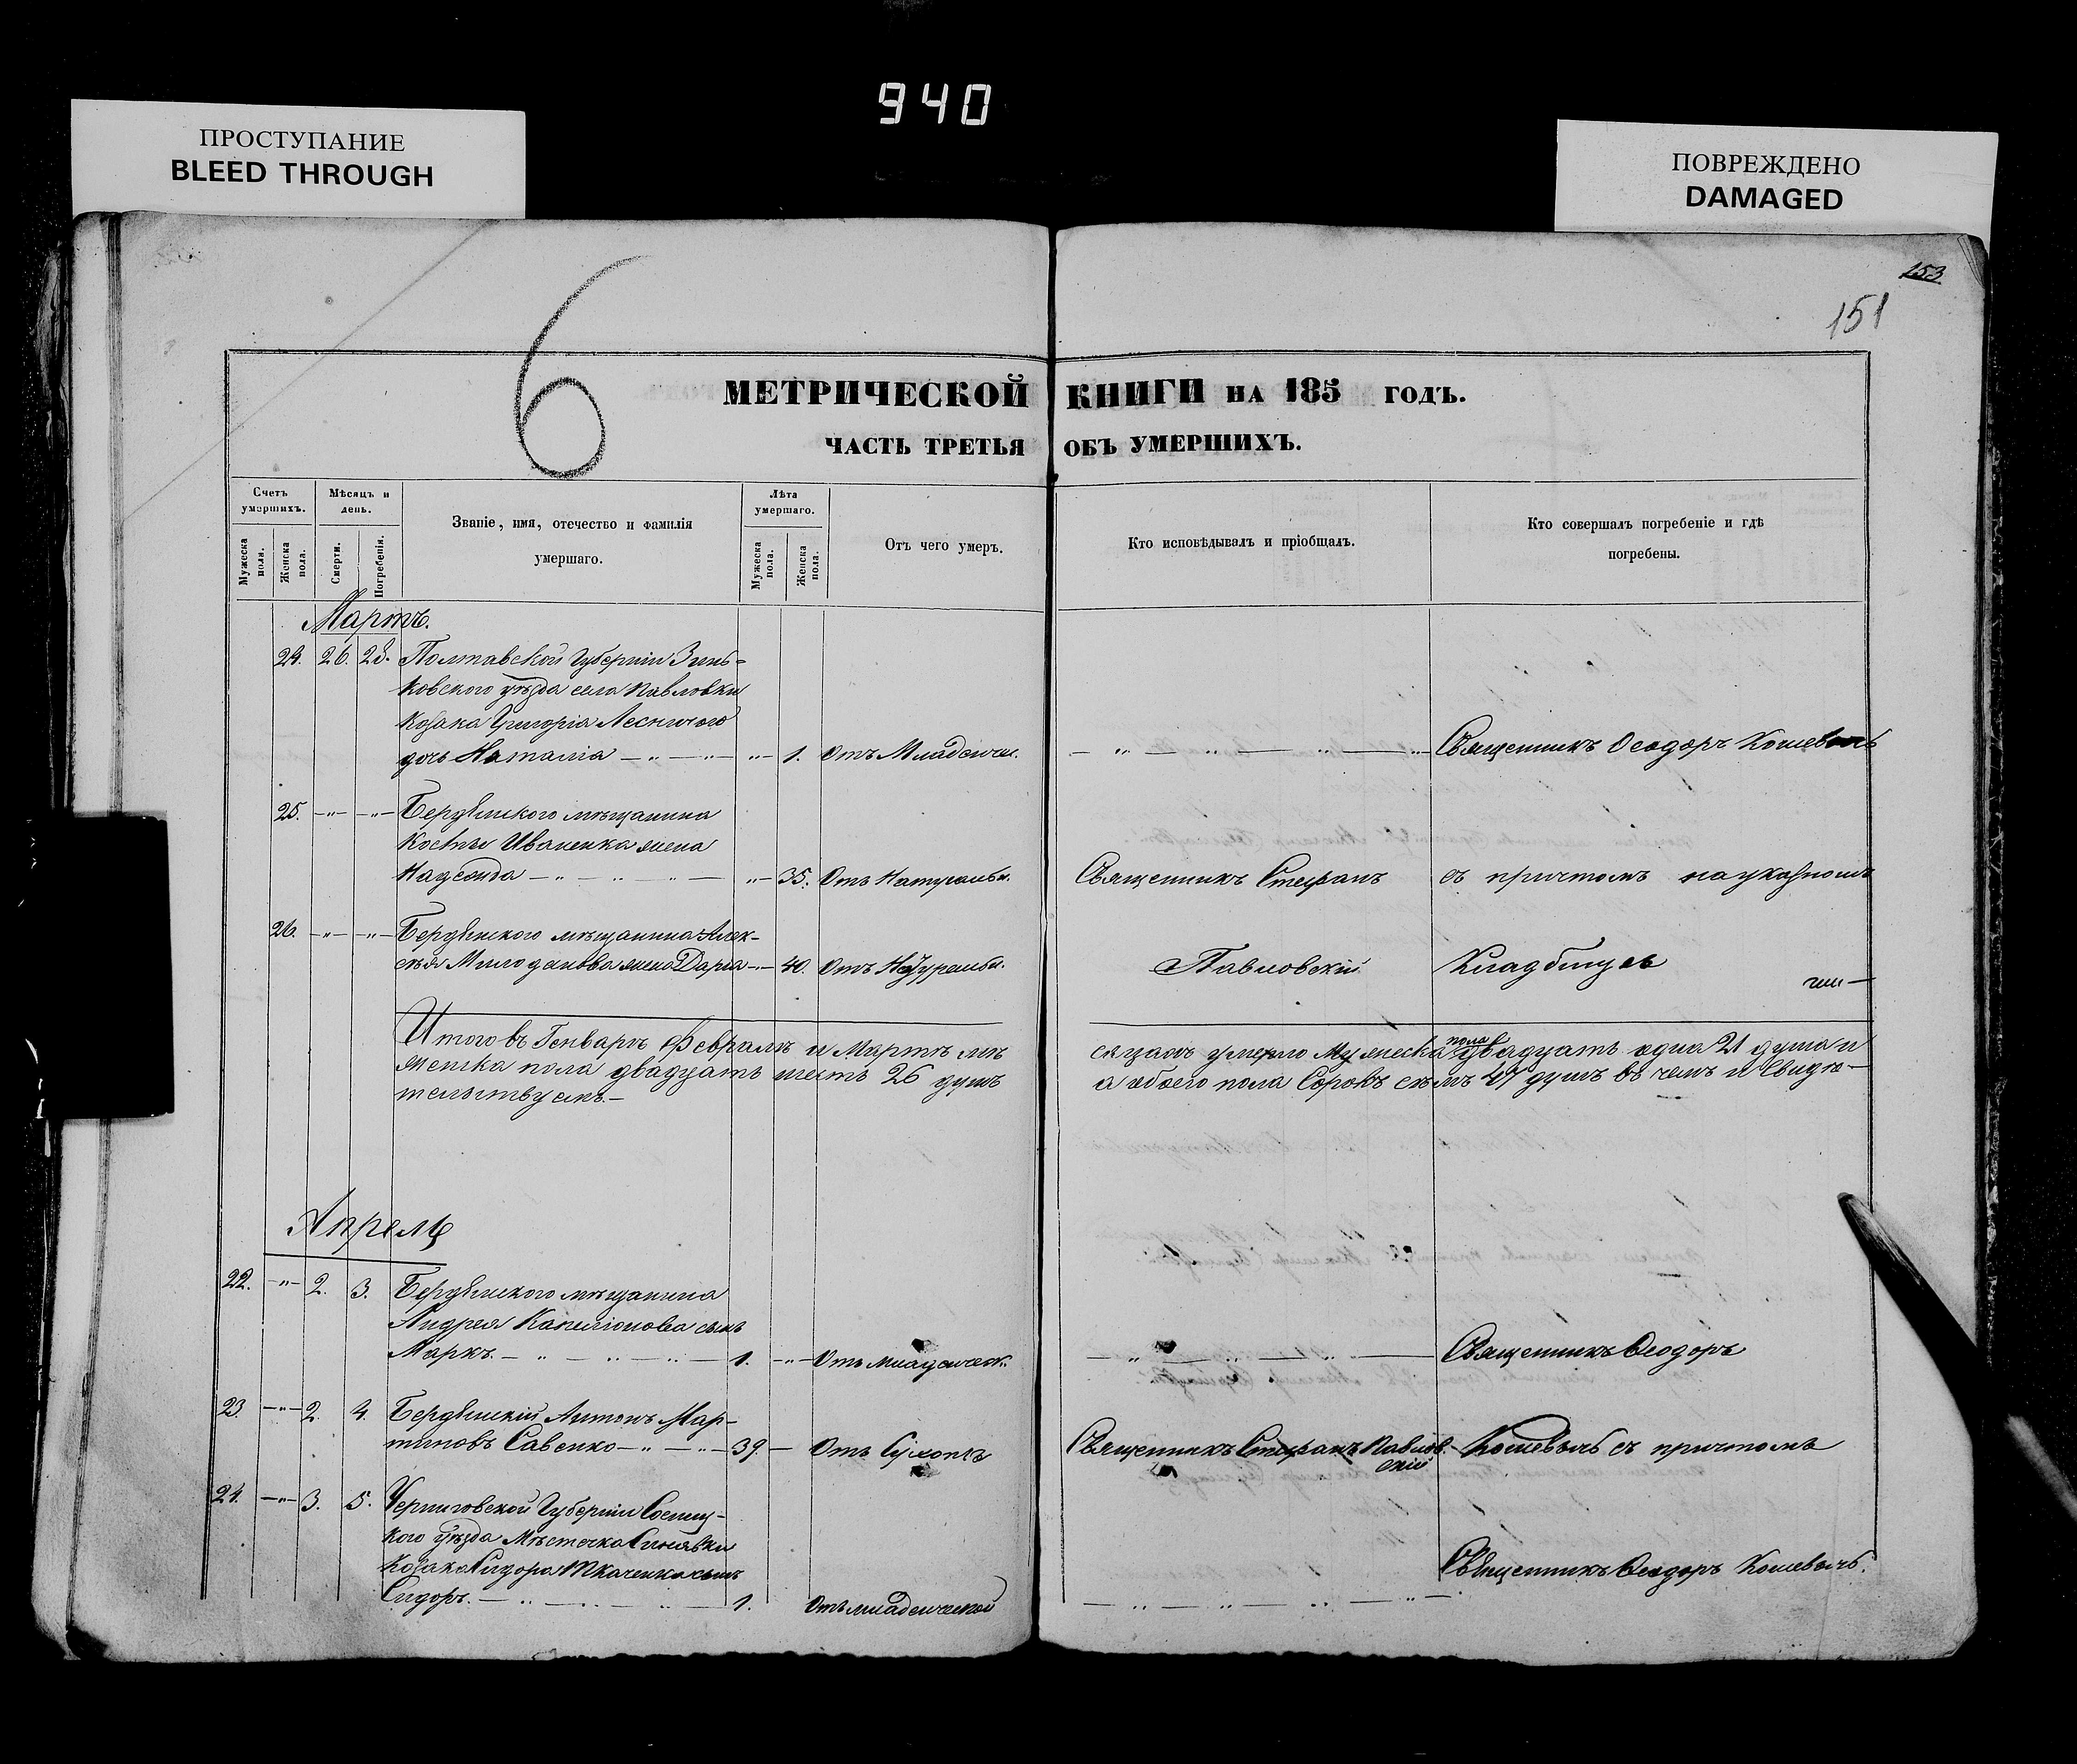 940
ПРОСТУПАНИЕ
BLEED THROUGH
ПОВРЕЖДЕНО
DAMAGED
153
151
6
МЕТРИЧЕСКОЙ КНИГИ НА 185 ГОДЪ.
ЧАСТЬ ТРЕТЬЯ ОБЪ УМЕРШИХЪ.
Счетъ умершихъ.
Мужеска пола.
Женска пола.
Мѣсяцъ и день.
Смерти.
Погребенія.
Званіе, имя, отечество и фамилія
умершаго.
Лѣта умершаго.
Мужеска пола.
Женска пола.
Отъ чего умеръ.
Кто исповѣдывалъ и пріобщалъ.
Кто совершалъ погребеніе и гдѣ
погребены.
Мартъ.
24. 26. 28. Полтавской Губерніи Зинь-
ковского уѣзда села Павловки
Козака Григорія Лесничого
дочь Наталія — „ — „ — „ — 1. Отъ Младенчес. Священникъ Ѳеодоръ Кошевый
25. —„— —„— Бердянского мѣщанина
Косты Иваненка жена
Надежда — „ — „ — „ — 35. Отъ Натуральн. Священникъ Стефанъ съ причтомъ на указномъ
26. —„— —„— Бердянского мѣщанина Алек-
сѣя Милоданова жена Дарія —„— 40. Отъ Натуральн. Павловскій Кладбищѣ
Итого въ Генварѣ Февралѣ и Мартѣ мѣ сяцахъ умерло Мужеска пола двадцать одна 21 душа и
Женска пола двадцать шесть 26 душъ а обоего пола Сорокъ семъ 47 душъ въ чемъ и Свидѣ-
тельствуемъ.—
Апрель
22. —„— 2. 3. Бердянского мѣщанина
Андрея Капеліонова сынъ
Маркъ. — „ — „ — „ — 1. —„— Отъ младенчес. Священникъ Ѳеодоръ
23. —„— 2. 4. Бердянскій Антонъ Мар-
тиновъ Савенко — „ — „ — 39. — Отъ Сухоты Священникъ Стефанъ Павлов- Кошевый съ причтомъ
скій
24. —„— 3. 5. Черниговской Губерніи Сосниц-
кого уѣзда Мѣстечка Синявки
Козака Сидора Ткаченка сынъ
Сидоръ. — „ — „ — „ — 1. Отъ младенческой Священникъ Ѳеодоръ Кошевый.